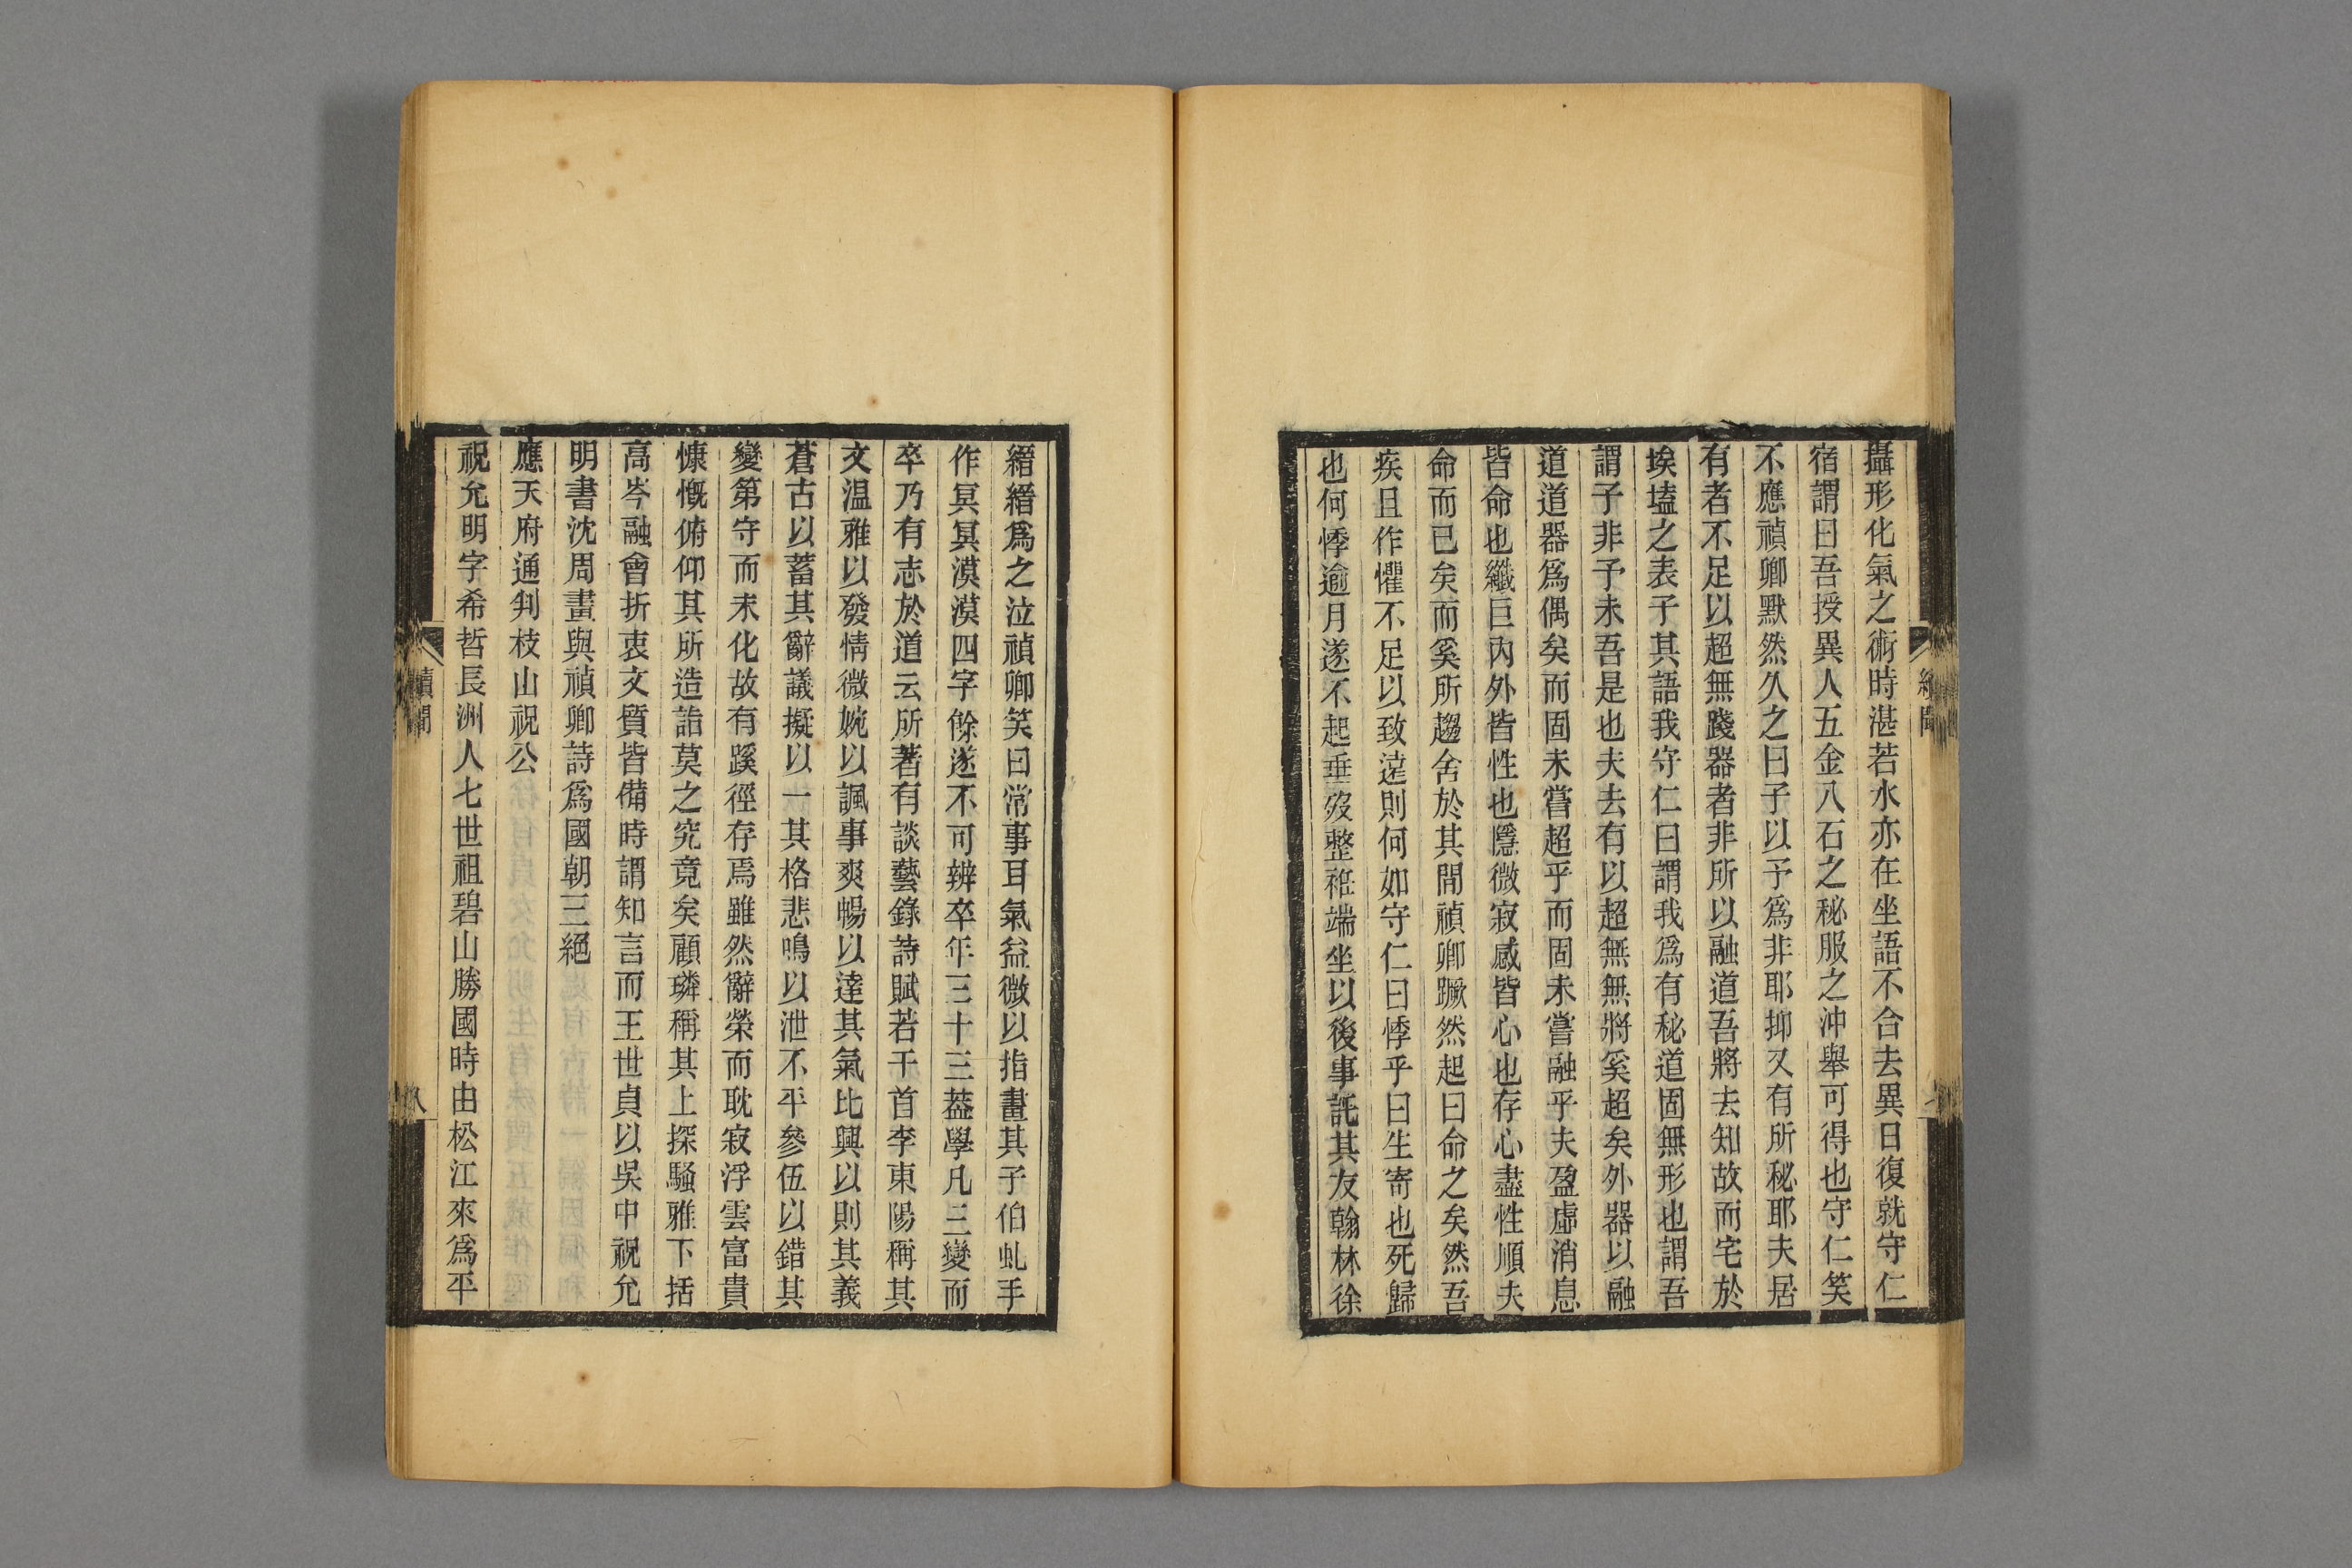 攝形化氣之術時湛若水亦在坐語不合去異日復就守仁
宿謂曰吾授異人五金八石之秘服之沖舉可得也守仁笑
不應禎卿默然久之曰子以予爲非耶抑又有所秘耶夫居
有者不足以超無踐器者非所以融道吾將去知故而宅於
埃壒之表子其語我守仁曰謂我爲有秘道固無形也謂吾
謂子非予未吾是也夫去有以超無無將奚超矣外器以融
道道器爲偶矣而固未嘗超乎而固未嘗融乎夫盈虛消息
皆命也纖巨內外皆性也隱微寂感皆心也存心盡性順夫
命而已矣而奚所趨舍於其間禎卿蹶然起曰命之矣然吾
疾且作懼不足以致遠則何如守仁曰悸乎曰生寄也死歸
也何悸逾月遂不起垂歿整袵端坐以後事託其友翰林徐
縉縉爲之泣禎卿笑曰常事耳氣益微以指畫其子伯虬手
作冥冥漠漠四字餘遂不可辨卒年三十三葢學凡三變而
卒乃有志於道云所著有談藝錄詩賦若干首李東陽稱其
文温雅以發情微婉以諷事爽暢以達其氣比興以則其義
蒼古以蓄其辭議擬以一其格悲鳴以泄不平參伍以錯其
變第守而未化故有蹊徑存焉雖然辭榮而耽寂浮雲富貴
慷慨俯仰其所造詣莫之究竟矣顧璘稱其上探騷雅下括
高岑融會折衷文質皆備時謂知言而王世貞以吳中祝允
明書沈周畫與禎卿詩爲國朝三絕
應天府通判枝山祝公
祝允明字希哲長洲人七世祖碧山勝國時由松江來爲平
續聞
八